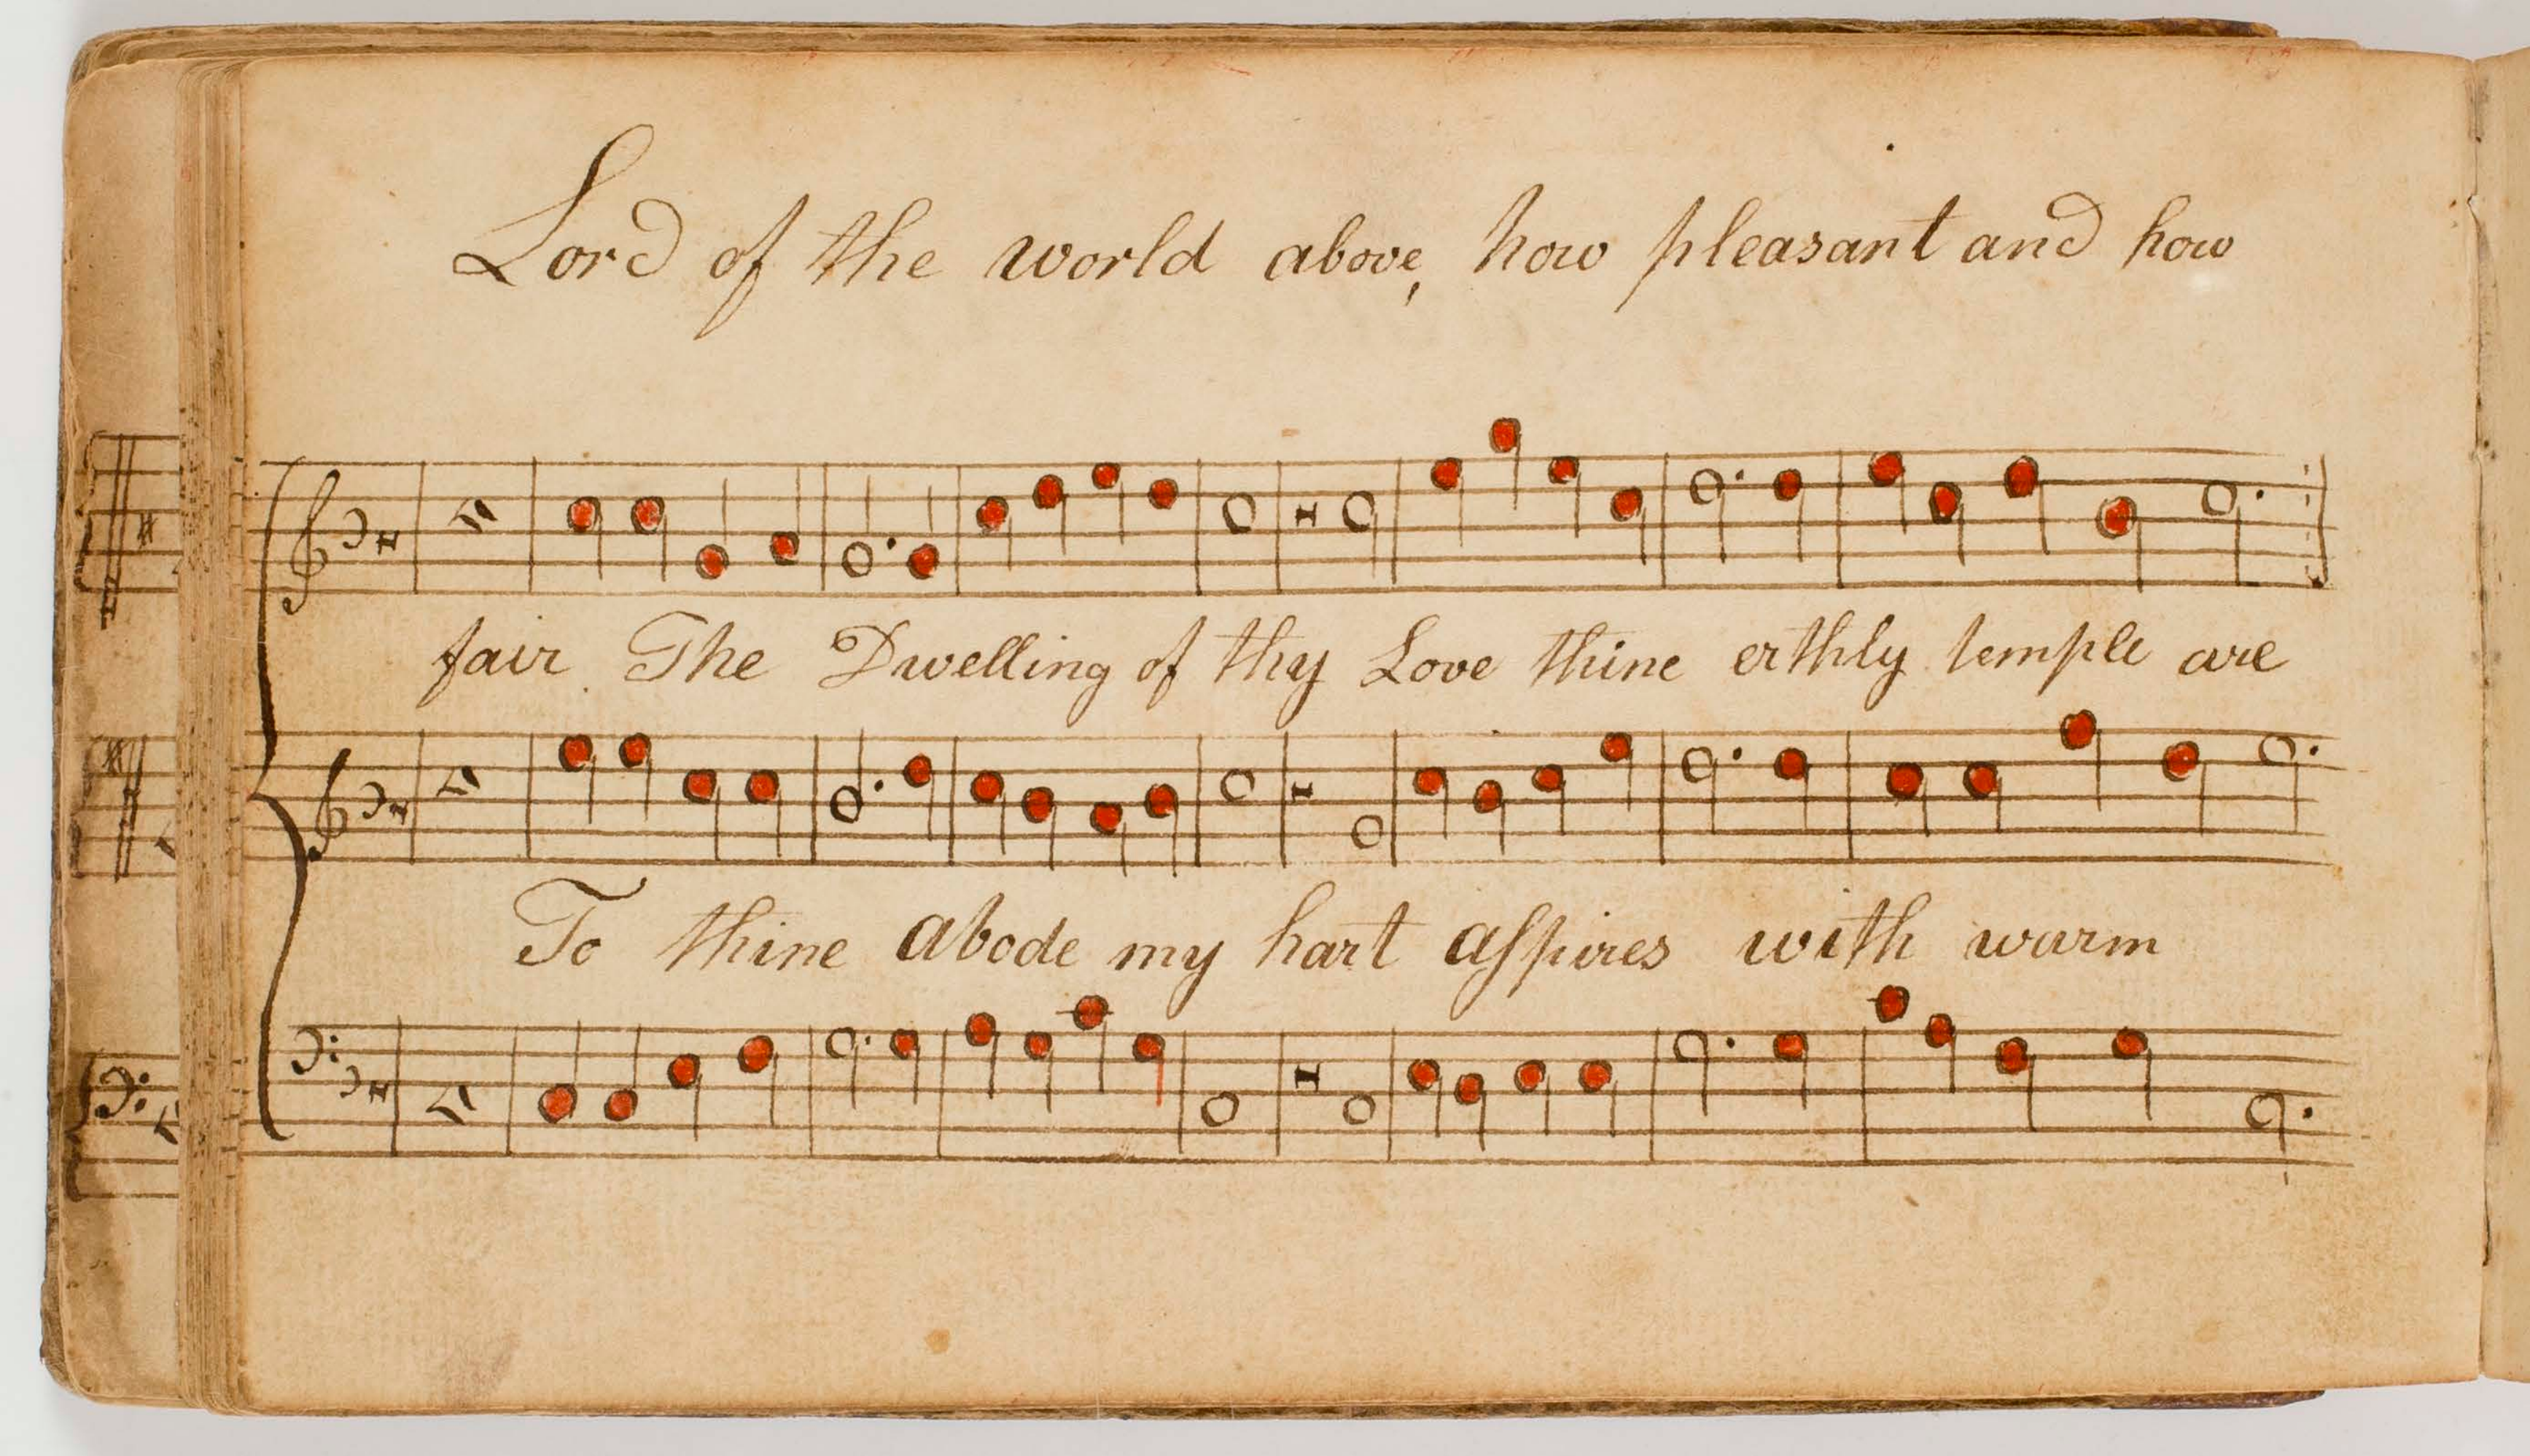 Lord of the world above, how pleasant and how
fair The Dwelling of thy Love thine erthly temple are
To thine abode my hart aspires with warm